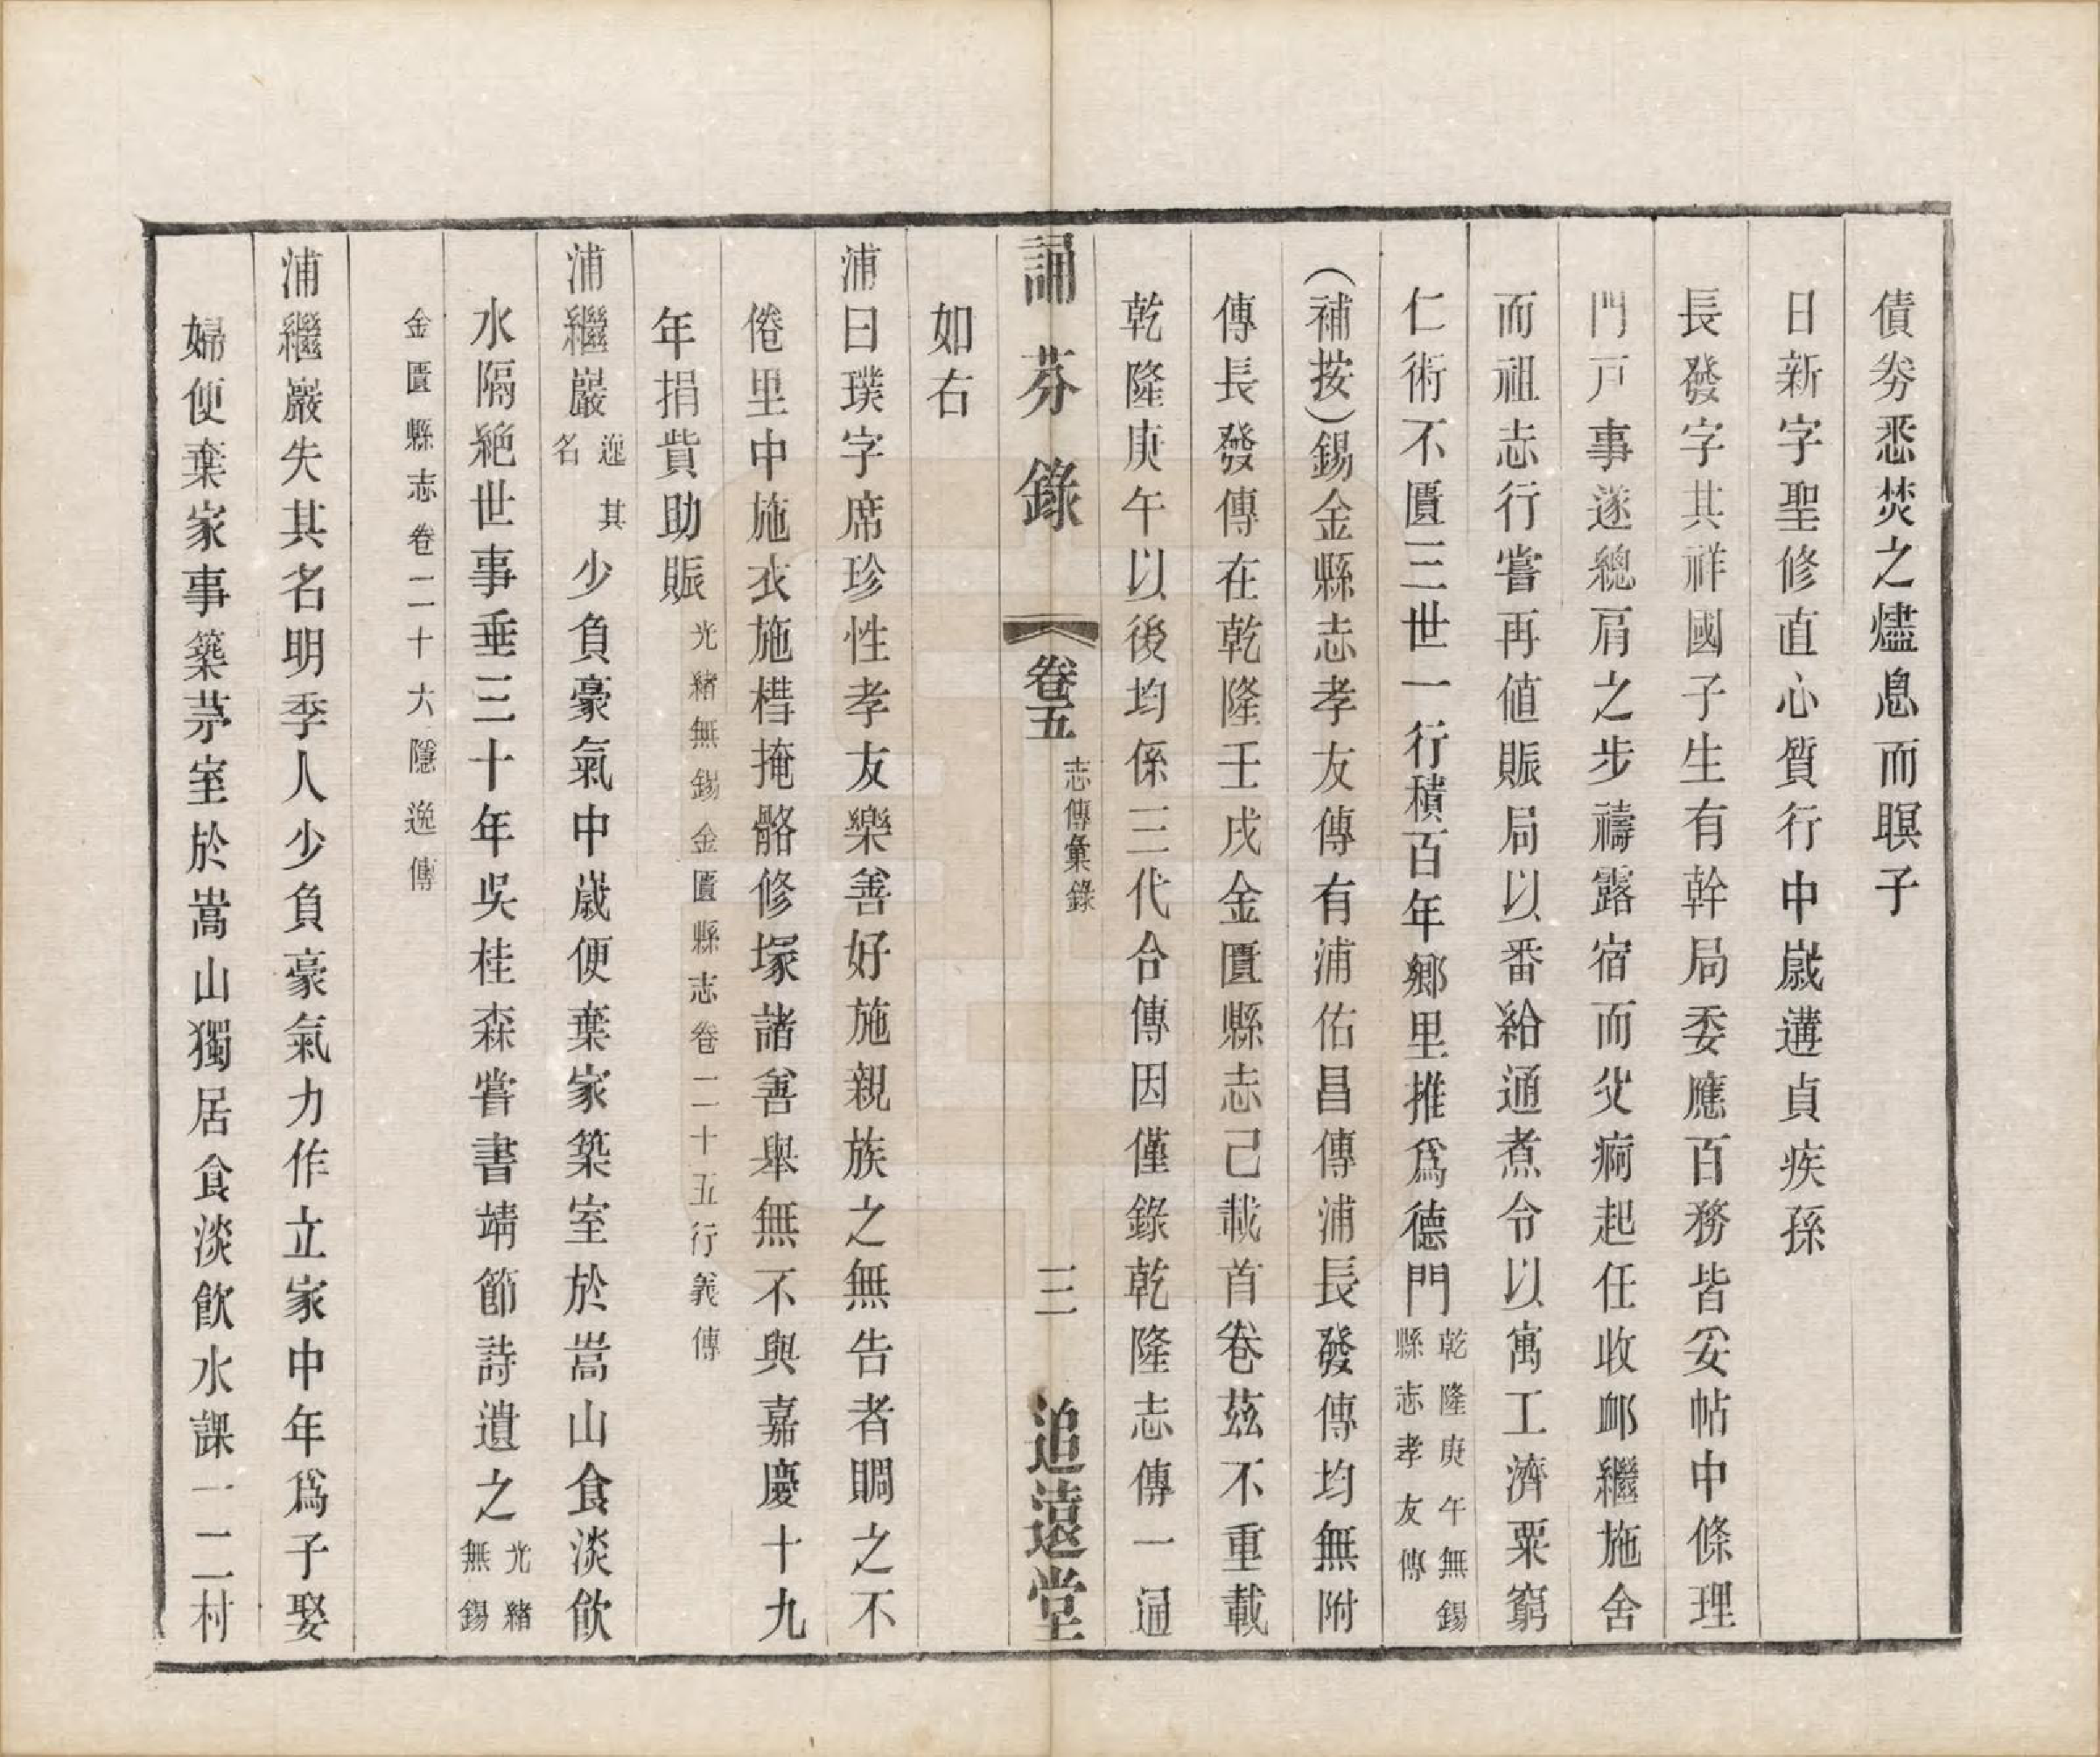 債劵悉焚之燼息而瞑子
日新字聖修直心質行中歲遘貞疾孫
長發字其祥國子生有幹局委應百務皆妥帖中條理
門戸事遂總肩之步禱露宿而父痾起任收䘏繼施舍
而祖志行嘗再值賑局以番給通煮令以寓工濟粟窮
仁術不匱三世一行積百年鄉里推爲德門乾隆庚午無錫
縣志孝友傳
（補按）錫金縣志孝友傳有浦佑昌傳浦長發傳均無附
傳長發傳在乾隆壬戌金匱縣志己載首卷茲不重載
乾隆庚午以後均係三代合傳因僅錄乾隆志傳一通
誦芬錄
卷五
志傳彙錄
三
追遠堂
如右
浦日璞字席珍性孝友樂善好施親族之無告者賙之不
倦里中施衣施槥掩骼修塚諸善舉無不與嘉慶十九
年捐貲助賑光緒無錫金匱縣志卷二十五行義傳
浦繼巖逸其
名少負豪氣中歲便棄家築室於嵩山食淡飲
水隔絶世事垂三十年吳桂森嘗書靖節詩遺之光緒
無錫
金匱縣志卷二十六隱逸傳
浦繼巖失其名明季人少負豪氣力作立家中年爲子娶
婦便棄家事築茅室於嵩山獨居食淡飲水課一二村